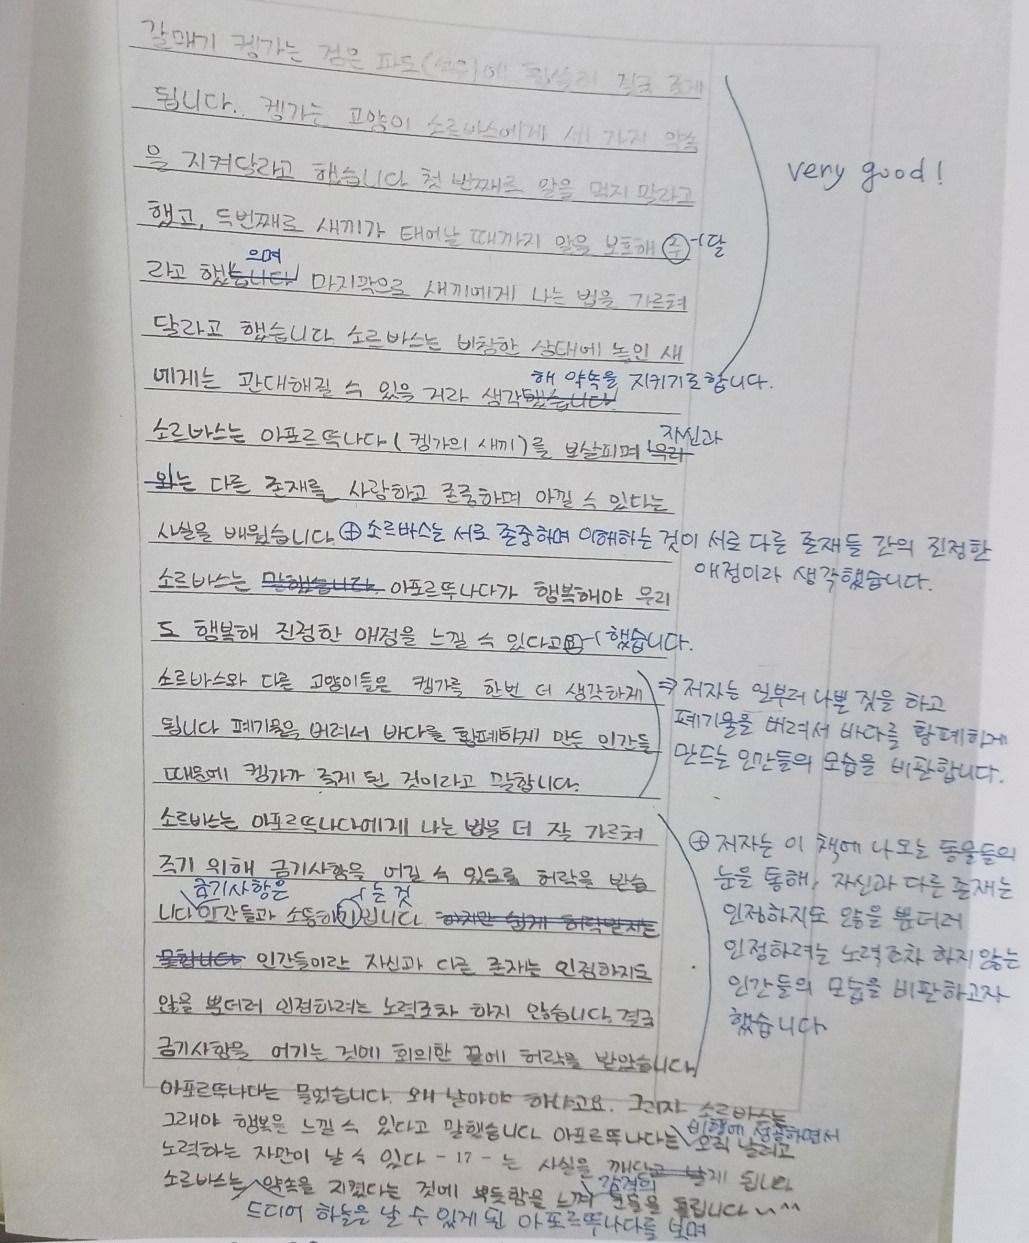 갈매기 켕가는 검은 파도(석유)에 휩쓸려 결국 죽게
됩니다. 켕가는 고양이 소르바스에게 세 가지 약속
을 지켜달라고 했습니다 첫 번째로 알을 먹지 말라고
했고, 두번째로 새끼가 태어날 때까지 알을 보호해 주 달
very good!
라고 했습니다 으며 마지막으로 새끼에게 나는 법을 가르쳐
달라고 했습니다 소르바스는 비참한 상태에 놓인 새
에게는 관대해질 수 있을 거라 생각했습니다. 해 약속을 지키기로 합니다.
소르바스는 아포르뚝나다(켕가의 새끼)를 보살피며 우리 자신과
와는 다른 존재를 사랑하고 존중하며 아낄 수 있다는
사실을 배웠습니다. ⊕ 소르바스는 서로 존중하며 이해하는 것이 서로 다른 존재들 간의 진정한
애정이라 생각했습니다.
소르바스는 말했습니다. 아포르뚝나다가 행복해야 우리
도 행복해 진정한 애정을 느낄 수 있다고요 했습니다.
소르바스와 다른 고양이들은 켕가를 한번 더 생각하게
됩니다 폐기물을 버려서 바다를 황폐하게 만든 인간들
때문에 켕가가 죽게 된 것이라고 말합니다.
⇒ 저자는 일부러 나쁜 짓을 하고
폐기물을 버려서 바다를 황폐하게
만드는 인간들의 모습을 비판합니다.
소르바스는 아포르뚝나다에게 나는 법을 더 잘 가르쳐
주기 위해 금기사항을 어길 수 있도록 허락을 받습
니다 금기사항은 인간들과 소통하기 는 것 입니다 하지만 쉽게 허락받지는
못합니다 인간들이란 자신과 다른 존재는 인정하지도
않을 뿐더러 인정하려는 노력조차 하지 않습니다. 결국
금기사항을 어기는 것에 회의한 끝에 허락을 받았습니다
⊕ 저자는 이 책에 나오는 동물들의
눈을 통해, 자신과 다른 존재는
인정하지도 않을 뿐더러
인정하려는 노력조차 하지 않는
인간들의 모습을 비판하고자
했습니다
아포르뚝나다는 물었습니다. 왜 날아야 하냐고요. 그러자 소르바스는
그래야 행복을 느낄 수 있다고 말했습니다 아포르뚝나다는 비행에 성공하면서 오직 날려고
노력하는 자만이 날 수 있다 - 17 - 는 사실을 깨닫고 날게 됩니다
소르바스는 약속을 지켰다는 것에 뿌듯함을 느껴 감격의 눈물을 흘립니다 ^^
드디어 하늘을 날 수 있게 된 아포르뚝나다를 보며